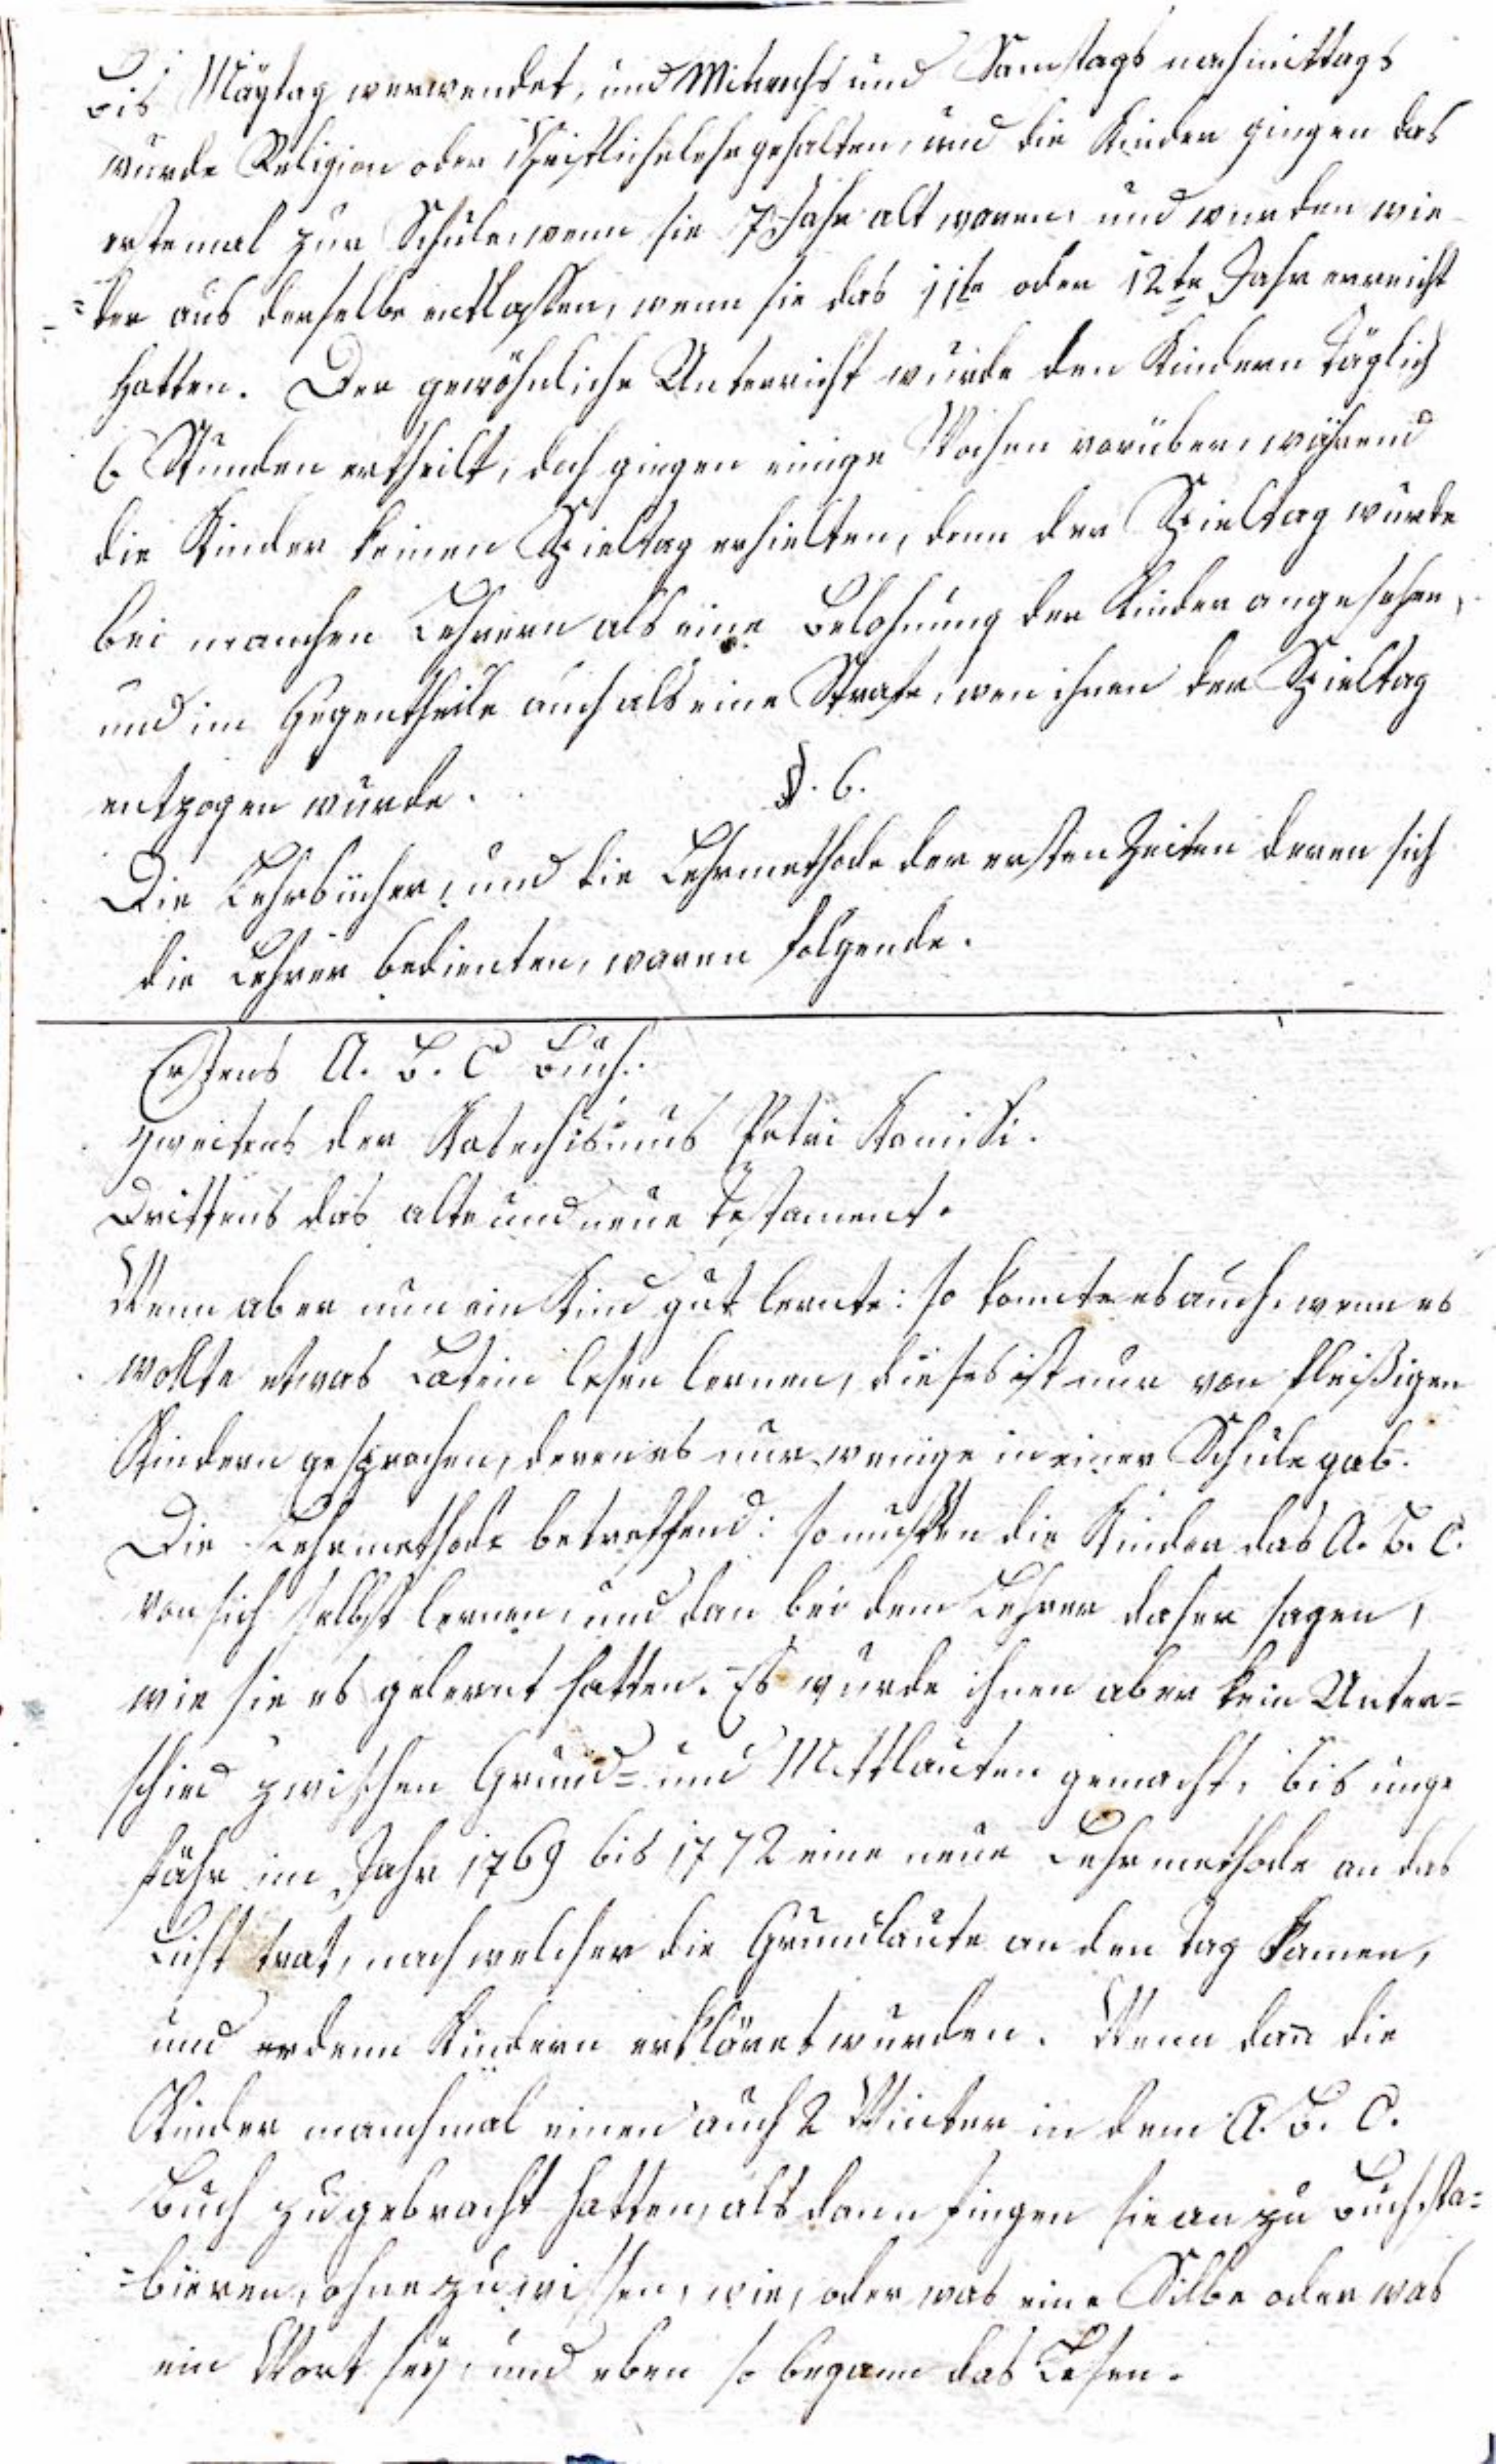 bis Maytag verwendet, und Mitwochs und Samstags nachmittags
wurde Religion oder Christlichelehr gehalten, und die Kinder gingen das
erstemal zur Schule, wenn sie 7 Jahr alt waren, und wurden wie
=der aus derselbe entlassen, wenn sie das 11te oder 12te Jahr erreicht
hatten. Der gewöhnliche Unterricht wurde den Kindern täglich
6 Stunden ertheilt, doch gingen einige Wochen vorüber, während
die Kinder keinen Spieltag erhielten, denn der Spieltag wurde
bei manchen Lehrern als eine Belohnung der Kinder angesehen,
und im Gegentheile auch als eine Strafe, wen ihnen der Spieltag
entzogen wurde.
§. 6.
Die Lehrbücher, und die Lehrmethode der ersten Zeiten deren sich
die Lehrer bedienten, waren folgende.
Erstens A. B. C Buch.
zweitens der Katechismus Petri Kanisi.
Drittens das alte und neue Testament.
Wenn aber nun ein Kind gut lernte: so konnte es auch, wenn es
wollte etwas Latein lesen lernen, dieses ist nur von fleißigen
Kindern gesprochen, deren es nur wenige in einer Schule gab.
Die Lehrmethode betreffend: so mußten die Kinder das A. B. C.
von sich selbst lernen, und dan bei dem Lehrer daher sagen,
wie sie es gelernt hatten. Es wurde ihnen aber kein Unter=
schied zwischen Grund= und Mittlauten gemacht, bis unge
fähr im Jahr 1769 bis 1772 eine neue Lehrmethode an das
Licht trat, nach welcher die Grundlaute an den Tag kamen,
und erdenn Kindern erkläret wurden. Wenn dan die
Kinder manchmal einen auch 2 Winter in dem A. B. C.
Buch zugebracht hatten, als dann fingen sie an zu Buchsta=
=bieren, ohne zu wissen, wie, oder was eine Silbe oder was
ein Wort sey, und eben so begann das Lesen.